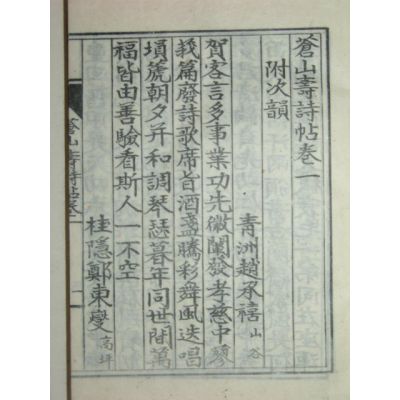 蒼山壽詩帖卷二
附次韻
青洲趙承禧 山谷
賀客言多事業功先徽闡發孝慈中蓼
莪篇廢詩歌席旨酒盞騰彩舞風迭唱
塤篪朝夕并和調琴瑟暮年同世間萬
福皆由善驗看斯人一不空
桂隱鄭東燮 高坪
蒼山壽詩帖卷二